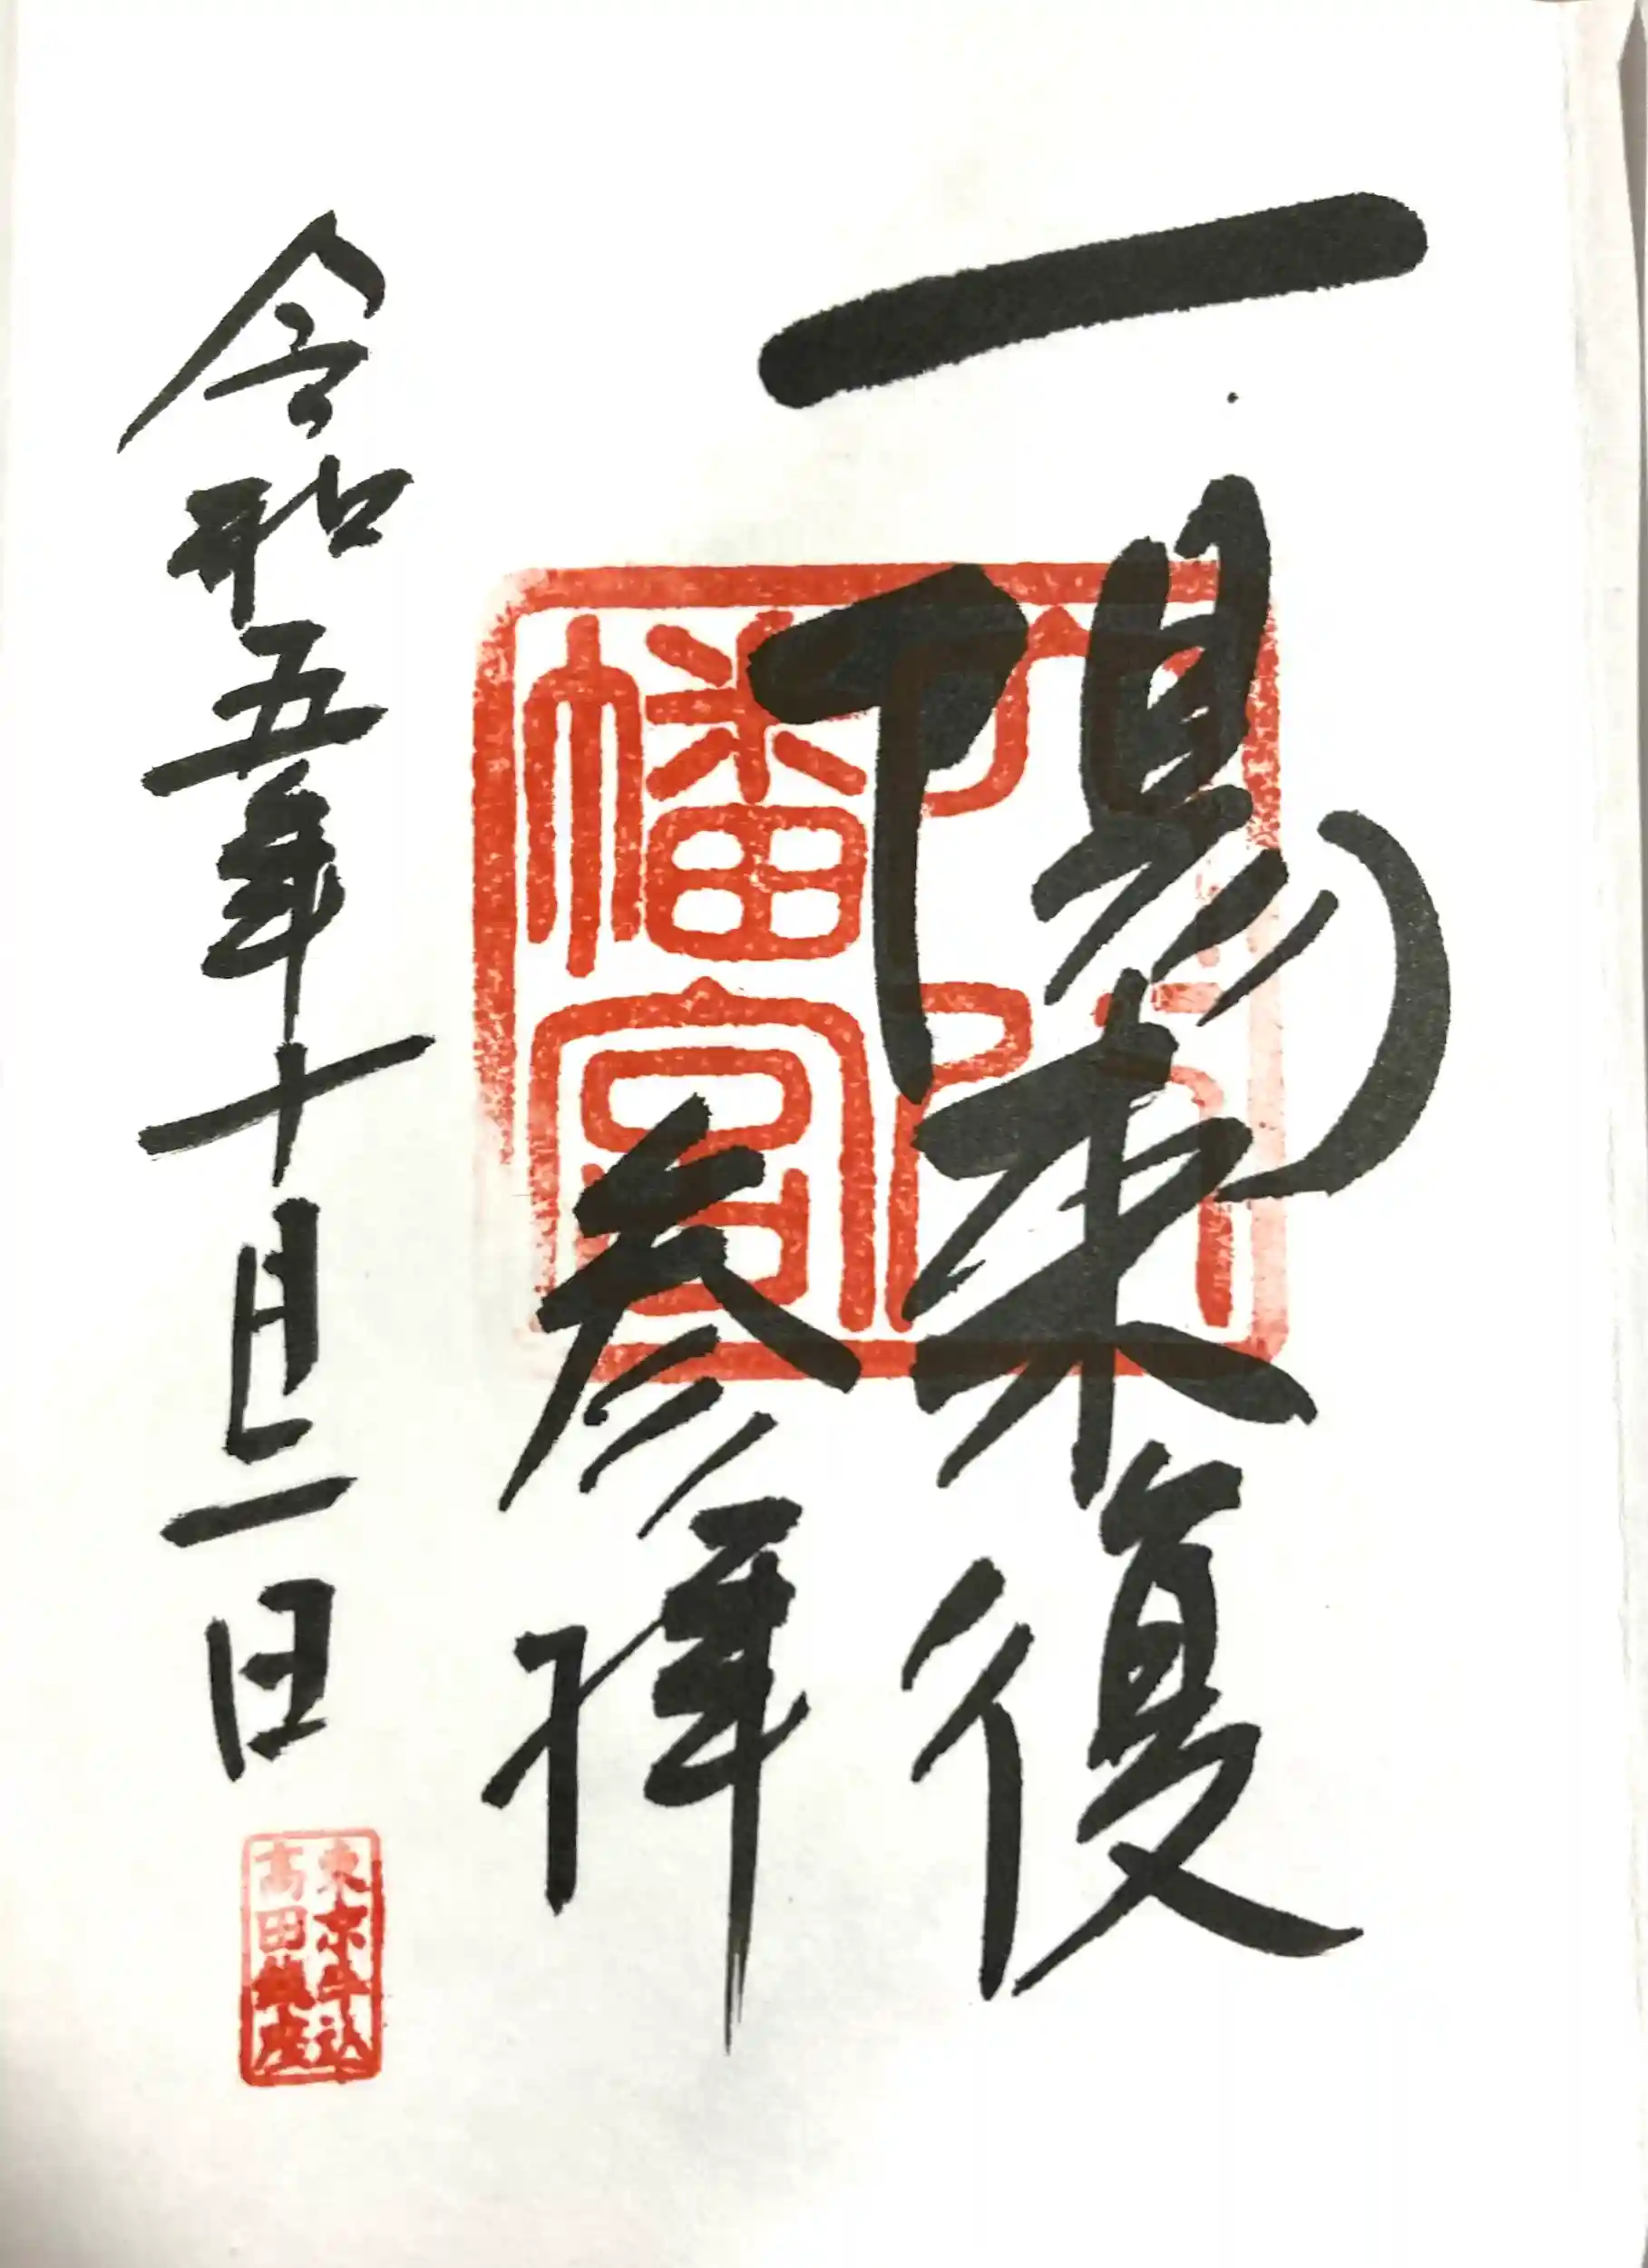 一陽来復
参拝
令和五年十月廿一日
穴八
幡宮
東京牛込
高田鎮座